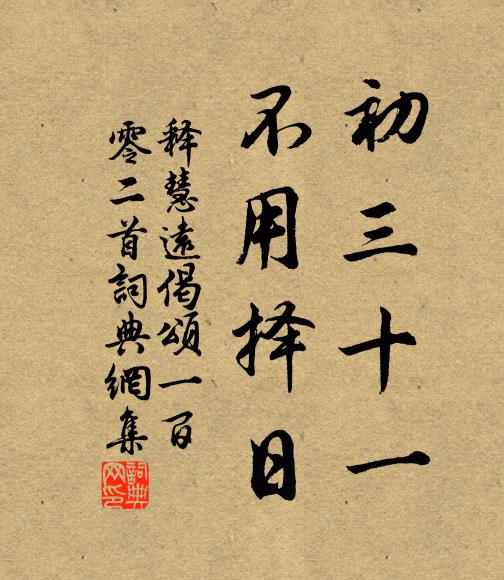 初三十一
不用择日
释慧遠偈頌一百
零二首詞典網集
詞典
网印